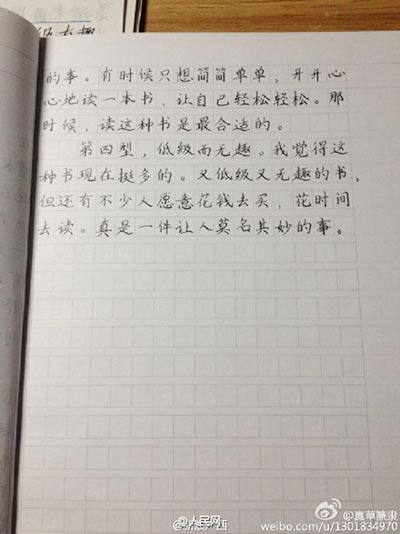 级有趣
的事。有时候只想简简单单，开开心
心地读一本书，让自己轻松轻松。那
时候，读这种书是最合适的。
第四型，低级而无趣。我觉得这
种书现在挺多的。又低级又无趣的书，
但还有不少人愿意花钱去买，花时间
去读。真是一件让人莫名其妙的事。
@人民网
weibo.com/u/1301834970